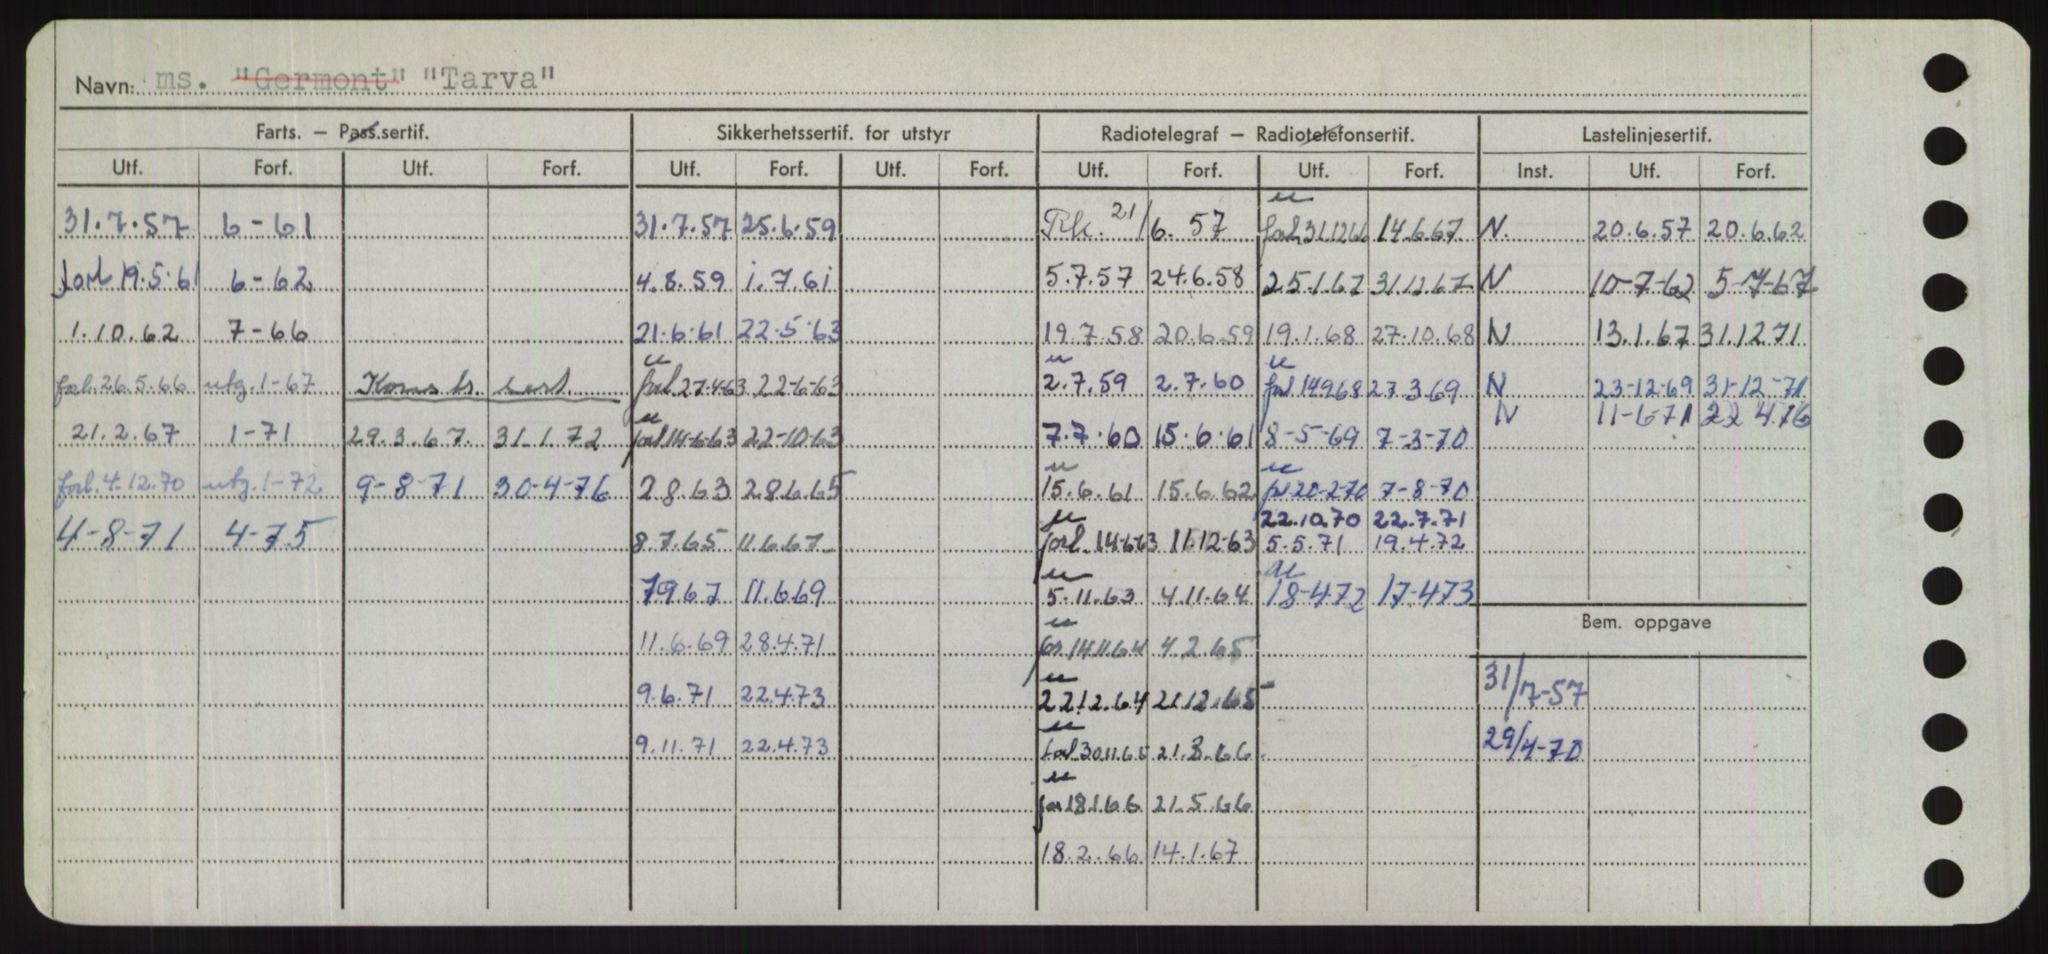 Navn: ms. "Germont" "Tarva"
Farts. — Pass.sertif. Sikkerhetssertif. for utstyr Radiotelegraf — Radiotelefonsertif. Lastelinjesertif.
Utf. Forf. Utf. Forf. Utf. Forf. Utf. Forf. Utf. Forf. Utf. Forf. Inst. Utf. Forf.
u
31.7.57 6-61 31.7.57 25.6.59 21/6.57 forl 31.12.66 14.6.67 N. 20.6.57 20.6.62
forl 19.5.61 6-62 4.8.59 1.7.61 5.7.57 24.6.58 25.1.67 31.12.67 N 10-7-62 5-7-67
1.10.62 7-66 21.6.61 22.5.63 19.7.58 20.6.59 19.1.68 27.10.68 N 13.1.67 31.12.71
u u u
forl. 26.5.66 utg. 1-67 Konstr. sert. forl 27.4.63 22-6-63 2.7.59 2.7.60 forl 14968 27.3.69 N 23-12-69 31-12-71
N 11-6-71 22.4.76
u
21.2.67 1-71 29.3.67. 31.1.72 forl 14-6-63 22-10-63 7.7.60 15.6.61 8-5-69 7-3-70
u u
forl. 4.12.70 utg. 1-72 9-8-71 30-4-76 2.8.63 28.6.65 15.6.61 15.6.62 forl 20-2-70 7-8-70
u 22.10.70 22.7.71
4-8-71 4-75 8.7.65 11.6.67 forl. 14-6-63 11.12-63 5.5.71 19.4.72
u u
7.9.67 11.6.69 5.11.63 4.11.64 18-4-72 17-4-73
u Bem. oppgave
11.6.69 28.4.71 for 14.11.64 4.2.65
u
9.6.71 22.4.73 22.12.64 21.12.65 31/7-57
u
9.11.71 22.4.73 forl 30.11.65 21.3.66 29/4-70
u
for 18.1.66 21.5.66
18.2.66 14.1.67